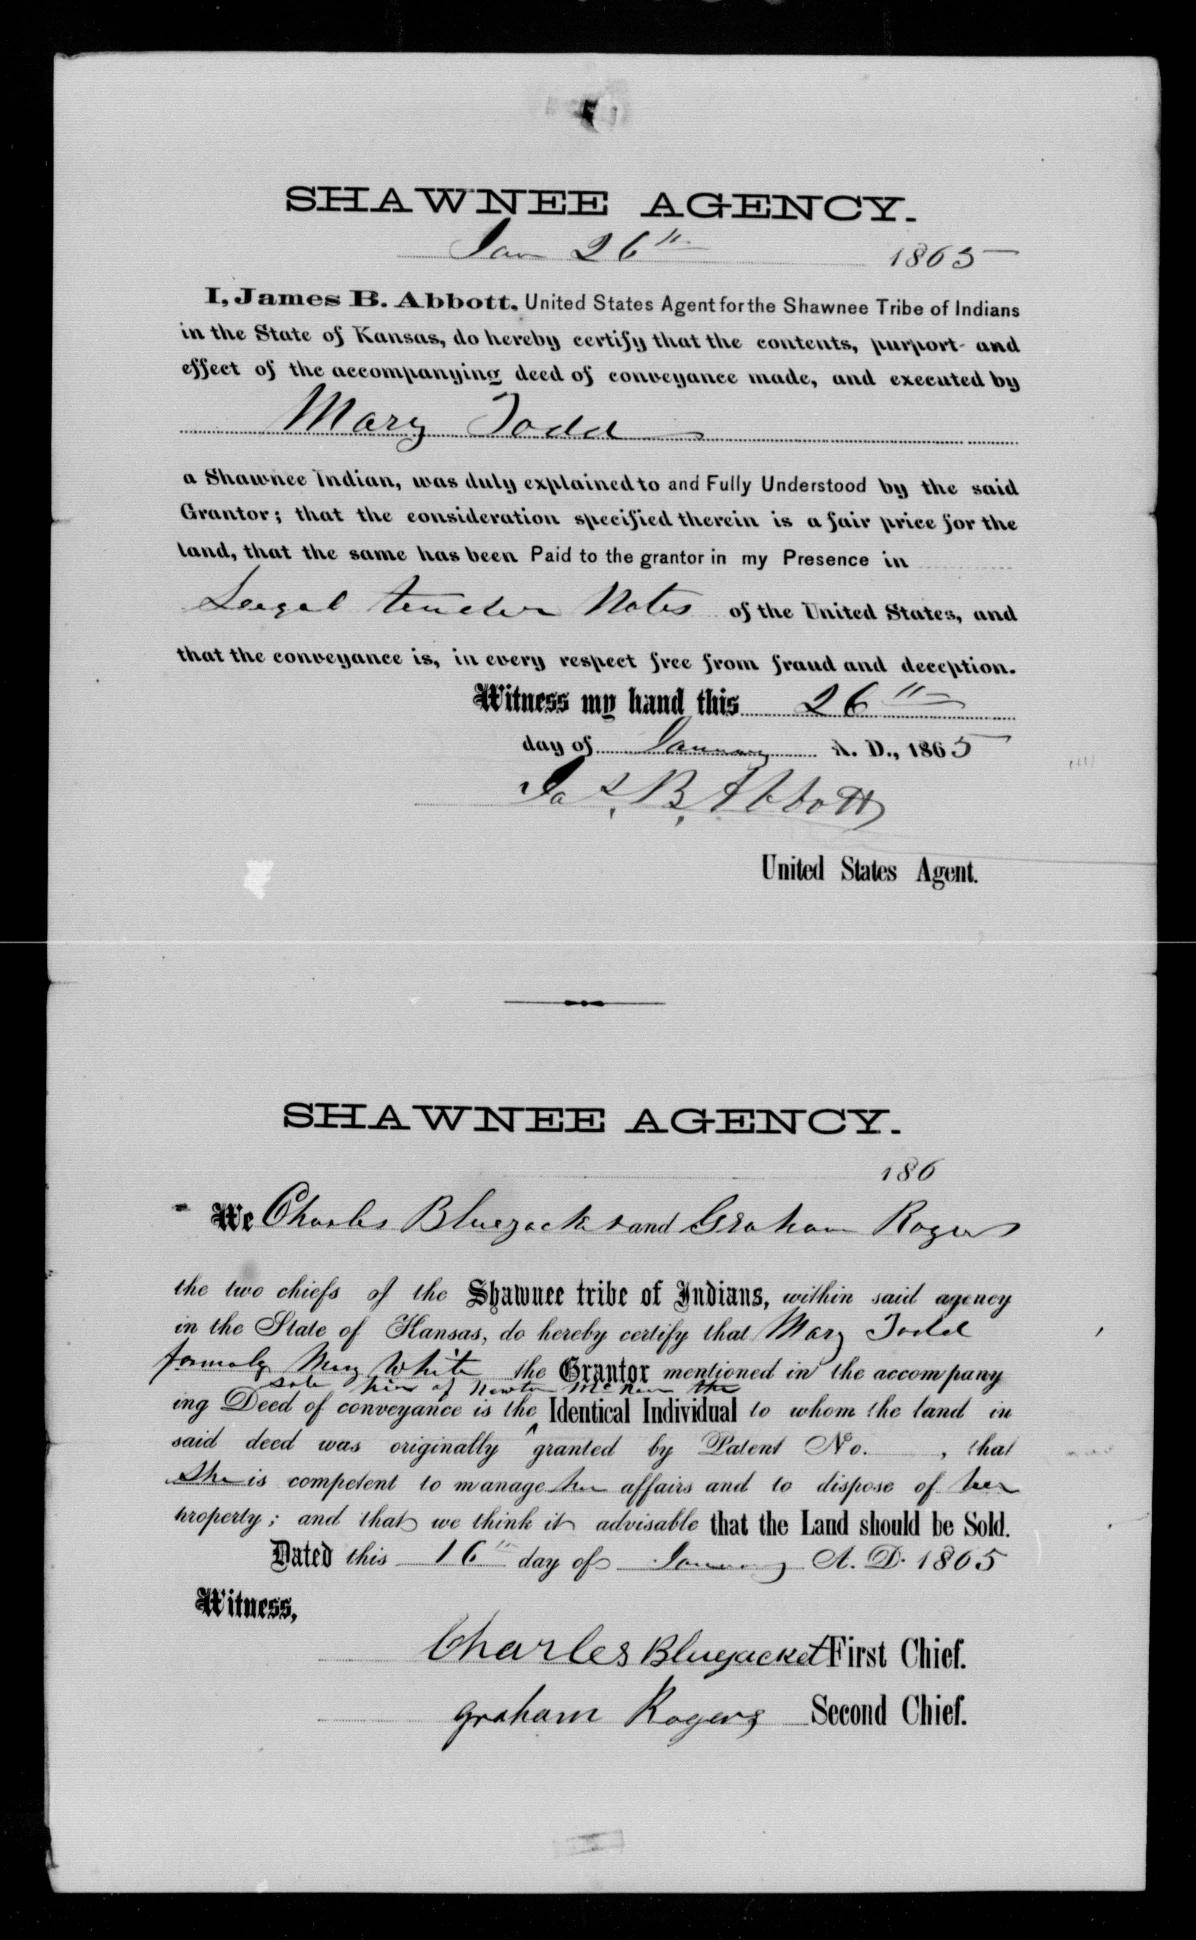 SHAWNEE AGENCY.
Jan 26th 1865
I, James B. Abbott, United States Agent for the Shawnee Tribe of Indians
in the State of Kansas, do hereby certify that the contents, purport and
effect of the accompanying deed of conveyance made, and executed by
Mary Todd
a Shawnee Indian, was duly explained to and Fully Understood by the said
Grantor; that the consideration specified therein is a fair price for the
land, that the same has been Paid to the grantor in my Presence in
Leegal tender Notes of the United States, and
that the conveyance is, in every respect free from fraud and deception.
Witness my hand this 26th
day of January A. D., 1865
Jas. B. Abbott
United States Agent.
SHAWNEE AGENCY.
186
We Charles Bluejacket and Graham Rogers
the two chiefs of the Shawnee tribe of Indians, within said agency
in the State of Kansas, do hereby certify that Mary Todd
formaly Mary White the Grantor mentioned in the accompany
sole heir of Newton the
ing Deed of conveyance is the ^ Identical Individual to whom the land in
said deed was originally granted by Patent No. , that
She is competent to manage her affairs and to dispose of her
property; and that we think it advisable that the Land should be Sold.
Dated this 16th day of January A. D. 1865
Witness,
Charles Bluejacket First Chief.
Graham Rogers Second Chief.